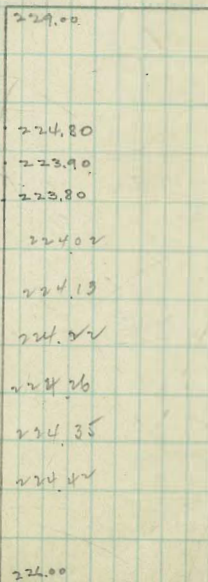 229.00
224.80
223.90
223.80
224.02
224.13
224.22
224.26
224.35
224.42